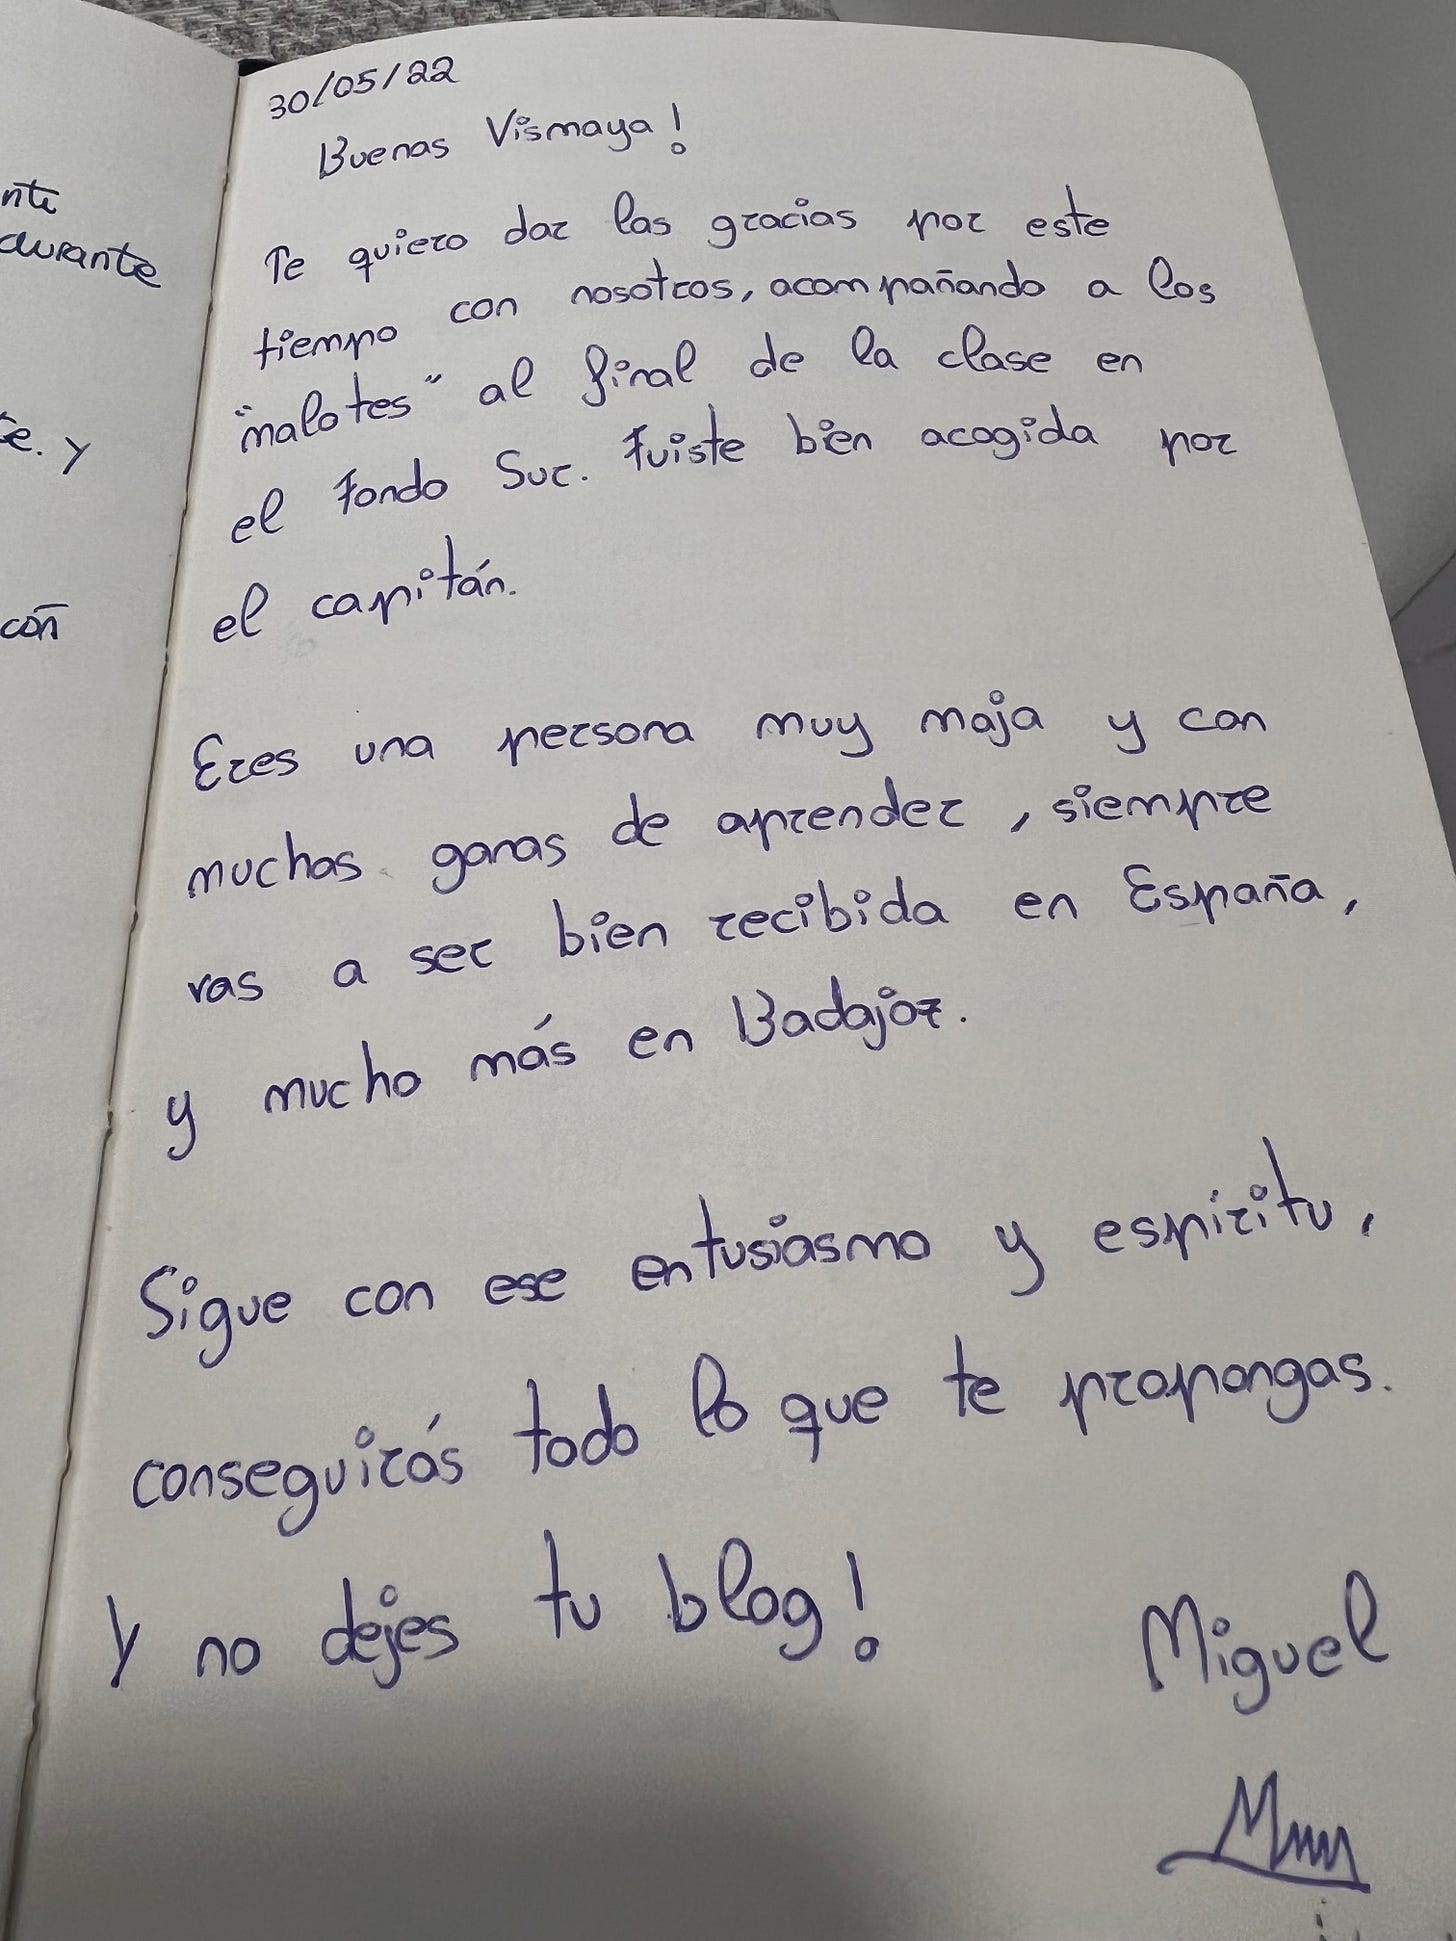 nte
durante
e. y
con
30/05/22
Buenas Vismaya!
Te quiero dar las gracias por este
tiempo con nosotros, acompañando a los
"malotes" al final de la clase en
el Fondo Sur. Fuiste bien acogida por
el capitán.
Eres una persona muy maja y con
muchas ganas de aprender, siempre
vas a ser bien recibida en España,
y mucho más en Badajoz.
Sigue con ese entusiasmo y espíritu,
conseguirás todo lo que te propongas.
Y no dejes tu blog!
Miguel